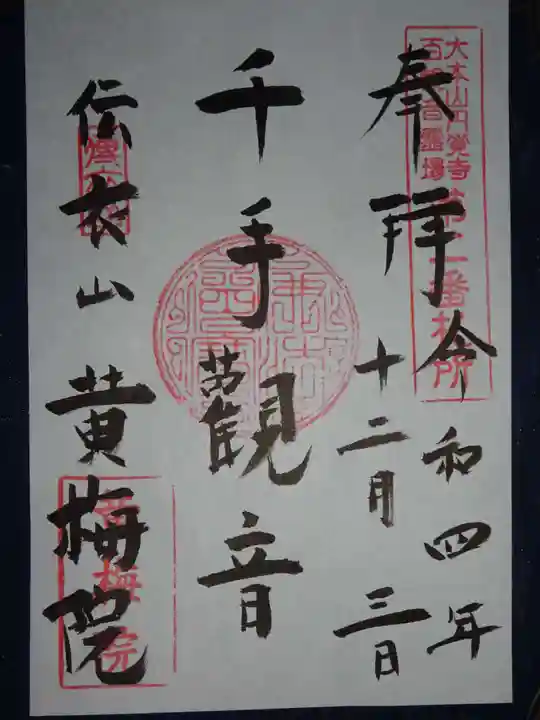 奉拝 令和四年
十二月三日
千手観音
伝衣山 黄梅院
大本山円覚寺
百観音霊場
第一番札所
黄梅院